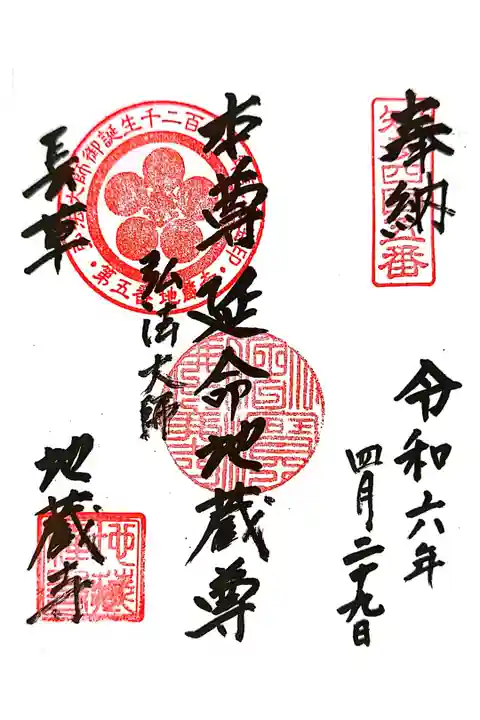 奉納
令和六年
四月二十九日
本尊 延命地蔵尊
弘法大師
長草
地蔵寺
大師御誕生千二百
第五番地蔵寺
五番